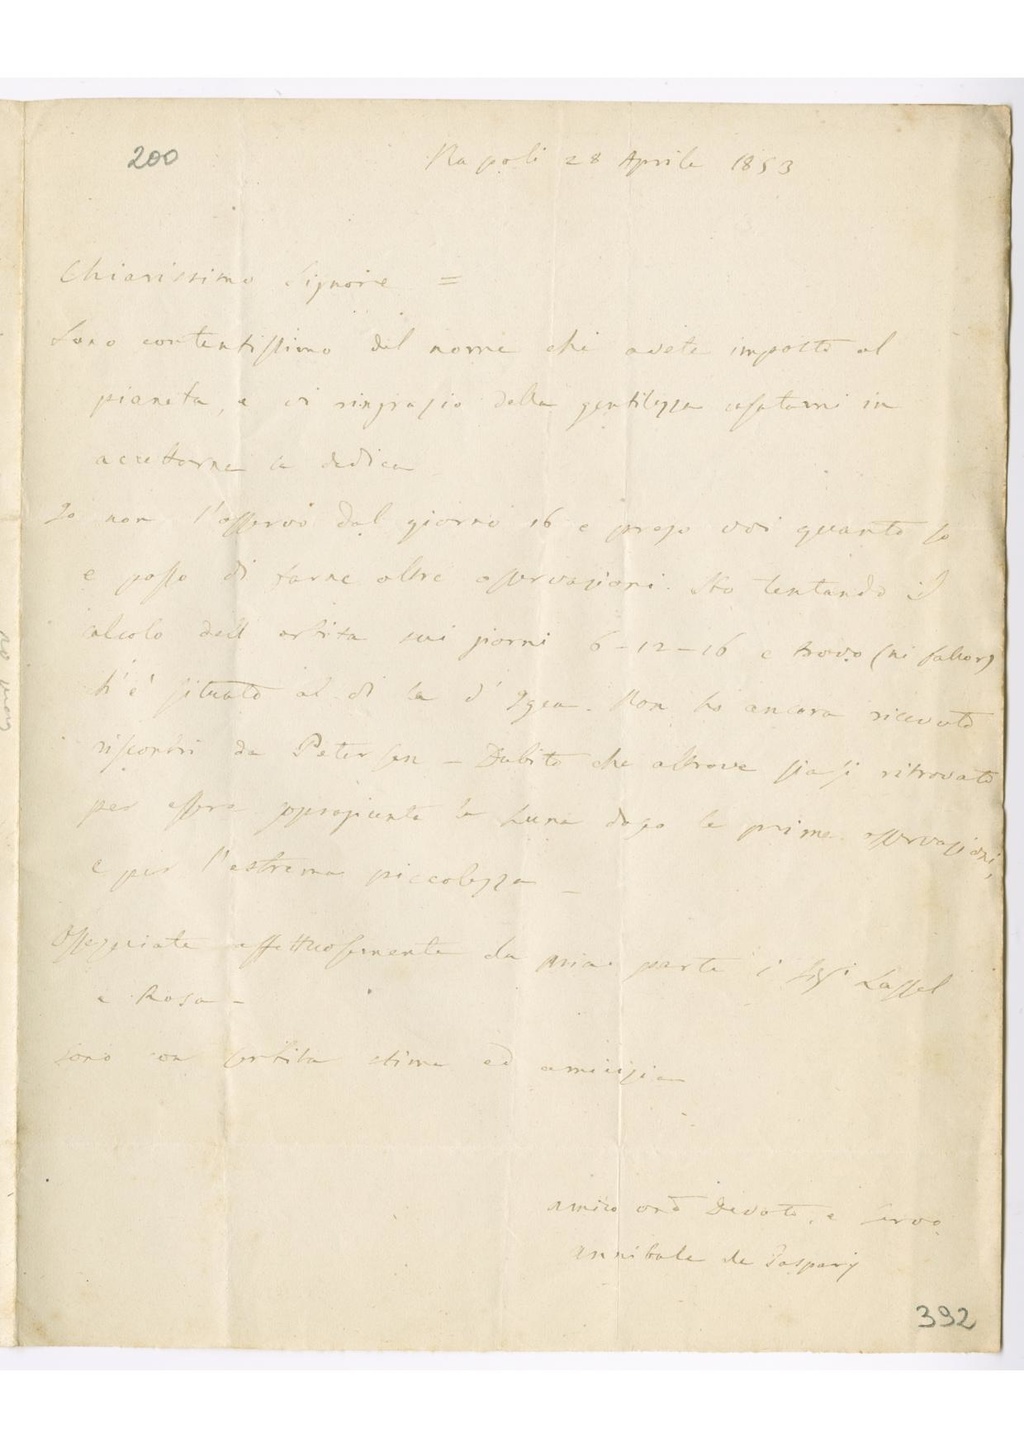 200
Napoli 28 Aprile 1853
Chiarissimo Signore =
Sono contentissimo del nome che avete imposto al
pianeta, e vi ringrazio della gentilezza usatami in
accettarne la dedica
Io non l'osservo dal giorno 16 e prego voi quanto so
e posso di farne altre osservazioni. Sto tentando il
calcolo dell orbita sui giorni 6-12-16 e trovo (ni fallor)
ch'è situato al di la d' Igea. Non ho ancora ricevuto
riscontri da Petersen _ Dubito che altrove siasi ritrovato
per essere sopragiunta la Luna dopo le prime osservazioni,
e per l'estrema piccolezza _
Ossequiate affettuosamente da mia parte i Sigi Lassel
e Rosa _
sono con stima ed amicizia
amico devoto, e servo
Annibale de Gasparis
392